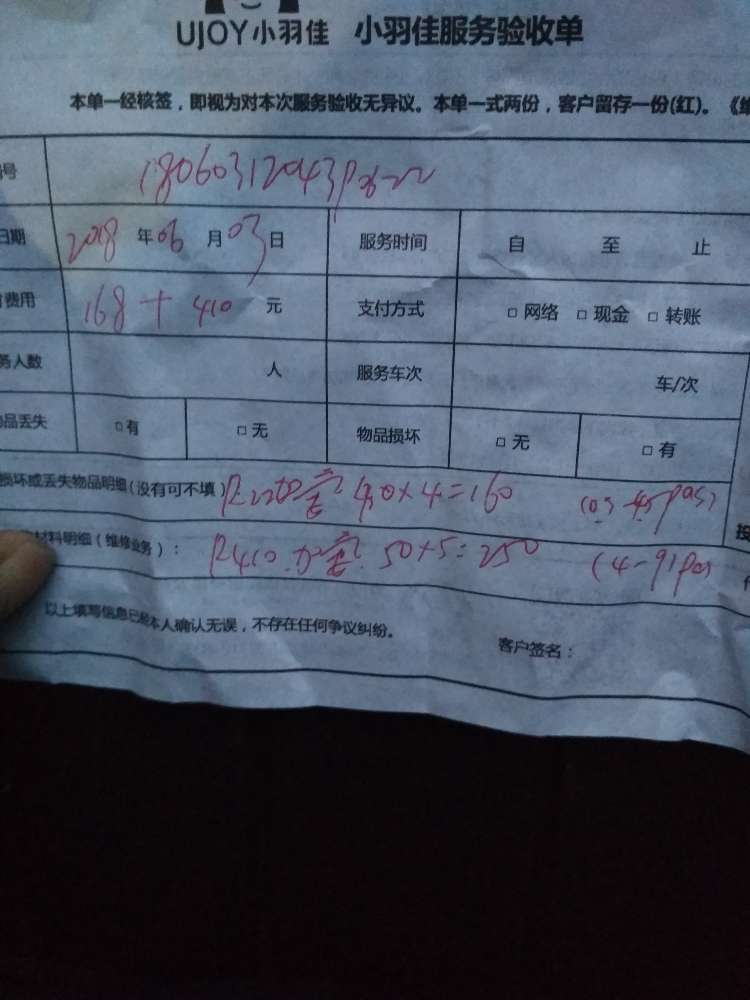 UJOY小羽佳 小羽佳服务验收单
本单一经核签，即视为对本次服务验收无异议。本单一式两份，客户留存一份(红)。《
号
日期 2018 年 06 月 03 日 服务时间 自 至 止
费用 168 + 410 元 支付方式 □ 网络 □ 现金 □ 转账
务人数 人 服务车次 车/次
品丢失 □ 有 □ 无 物品损坏 □ 无 □ 有
损坏或丢失物品明细(没有可不填) R22加 40×4=160
材料明细（维修业务）： R410 加 50×5=250
以上填写信息已经本人确认无误，不存在任何争议纠纷。 客户签名：